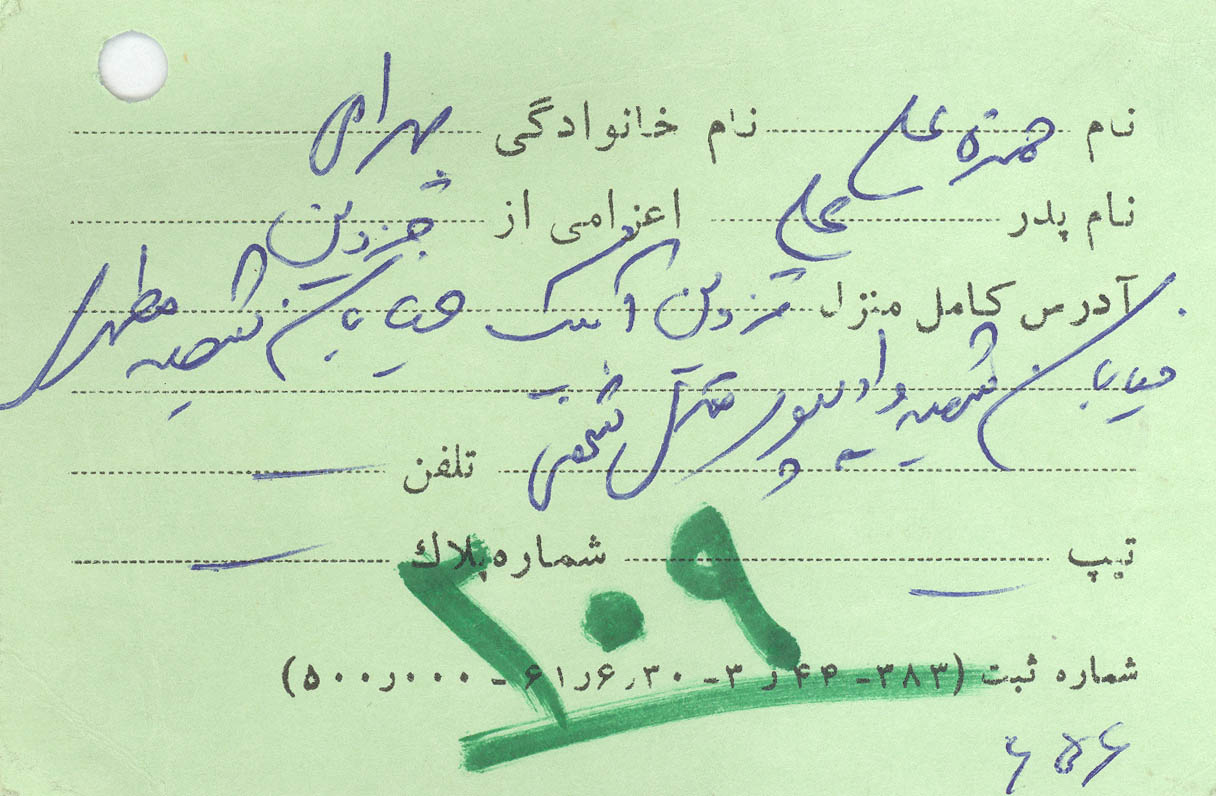 نام حمزه علی نام خانوادگی بهرامی
نام پدر علی اعزامی از قزوین
آدرس کامل منزل قزوین آبیک خیابان شهید مطهری
خیابان شهید منزل شخصی
تلفن —
تیپ — شماره پلاک —
۲۰۹
شماره ثبت (۳۸۳- ۴۴ر۳- ۶٫۳۰ر۶۱ - ۰۰۰ر۵۰۰)
۶۵۶